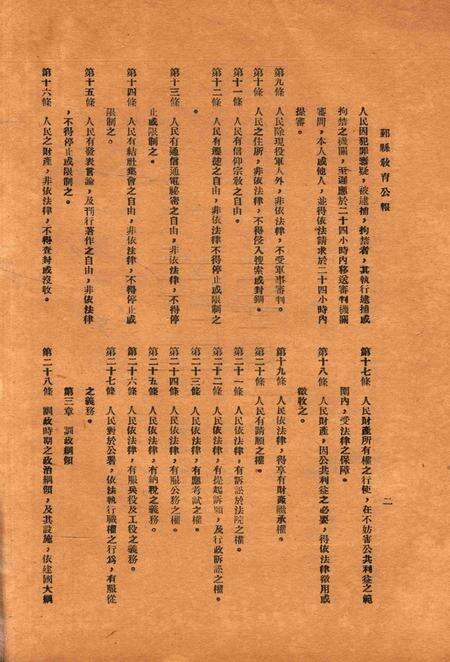 鄞縣教育公報
人民因犯罪嫌疑，被逮捕，拘禁者，其執行逮捕或
拘禁之機關，至遲應於二十四小時內移送審判機關
審問，本人或他人，並得依法請求於二十四小時內
提審。
第九條　人民除現役軍人外，非依法律，不受軍事審判。
第十條　人民之住所，非依法律，不得侵入搜索或封錮。
第十一條　人民有信仰宗教之自由。
第十二條　人民有遷徙之自由，非依法律不得停止或限制之
。
第十三條　人民有通信通電秘密之自由，非依法律，不得停
止或限制之。
第十四條　人民有結社集會之自由，非依法律，不得停止或
限制之。
第十五條　人民有發表言論，及刊行著作之自由，非依法律
，不得停止或限制之。
第十六條　人民之財產，非依法律，不得查封或沒收。
第十七條　人民財產所有權之行使，在不妨害公共利益之範
圍內，受法律之保障。
第十八條　人民財產，因公共利益之必要，得依法律徵用或
徵收之。
第十九條　人民依法律，得享有財產繼承權。
第二十條　人民有請願之權。
第二十一條　人民依法律，有訴訟於法院之權。
第二十二條　人民依法律，有提起訴願，及行政訴訟之權。
第二十三條　人民依法律，有應考試之權。
第二十四條　人民依法律，有服公務之權。
第二十五條　人民依法律，有納稅之義務。
第二十六條　人民依法律，有服兵役及工役之義務。
第二十七條　人民對於公署，依法執行職權之行爲，有服從
之義務。
第三章　訓政綱領
第二十八條　訓政時期之政治綱領，及其設施，依建國大綱
二